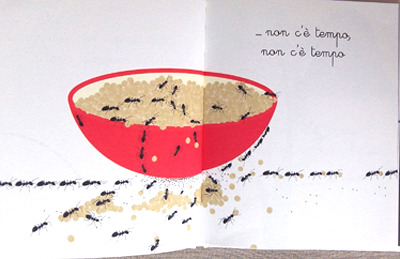 – non c'è tempo,
non c'è tempo